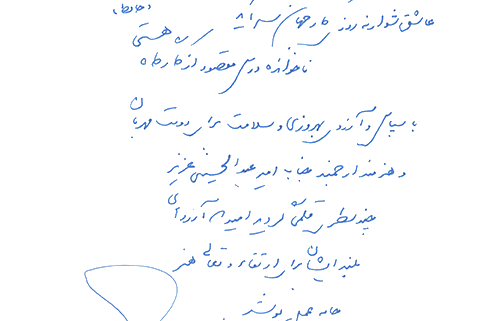 (حافظ)
عاشق شو ار نه روزی کار جهان سرآید
ناخوانده درس مقصود از کارگاه هستی
با سپاس و آرزوی بهروزی و سلامت برای دوست مهربان
و هنرمند ارجمند جناب امیر عبدالحسینی عزیز
چند سطری قلمی گردید امید آن آرزوهای
بلند ایشان برای ارتقاء و تعالی هنر
جامه عمل پوشد